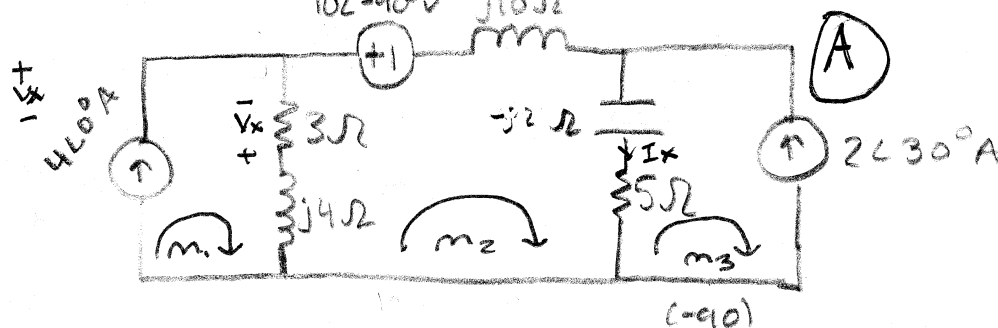 10∠-90°V
j10Ω
A
+ Vx -
4∠0°A
+ -
- Vx +
3Ω
j4Ω
-j2 Ω
Ix
5Ω
2∠30°A
m1
m2
m3
(-90)